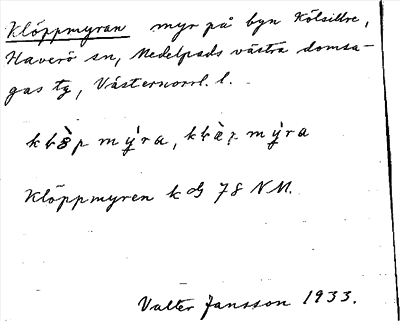 Klöppmyran myr på byn Kölsillre,
Haverö sn, Medelpads västra domsa-
gas tg, Västernorrl. l.
Klöppmyren k bl 78 NM.
Valter Jansson 1933.